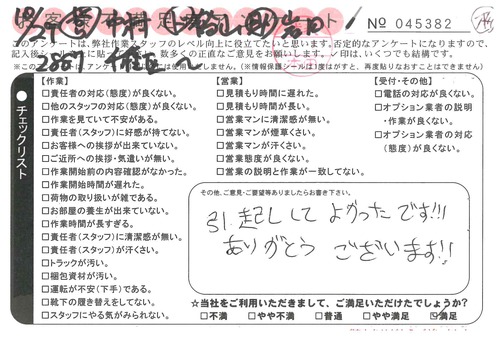 No 045382
このアンケートは、弊社作業スタッフのレベル向上に役立てたいと思います。否定的なアンケートになりますので、
【作業】
□責任者の対応(態度)が良くない。
□他のスタッフの対応(態度)が良くない。
□作業を見ていて不安がある。
□責任者(スタッフ)に好感が持てない。
□お客様への挨拶が出来ていない。
□ご近所への挨拶・気遣いが無い。
□作業開始前の内容確認がなかった。
□作業開始時間が遅れた。
□荷物の取り扱いが雑である。
□お部屋の養生が出来ていない。
□作業時間が長すぎる。
□責任者(スタッフ)に清潔感が無い。
□責任者(スタッフ)が汗くさい。
□トラックが汚い。
□梱包資材が汚い。
□運転が不安(下手)である。
□靴下の履き替えをしてない。
□スタッフにやる気がみられない。
【営業】
□見積もり時間に遅れた。
□見積もり時間が長い。
□営業マンに清潔感が無い。
□営業マンが煙草くさい。
□営業マンが汗くさい。
□営業態度が良くない。
□営業の説明と作業が一致してない。
【受付・その他】
□電話の対応が良くない。
□オプション業者の説明
・作業が良くない。
□オプション業者の対応
(態度)が良くない。
チェックリスト
その他、ご意見・ご要望等ありましたらお書き下さい。
引。起しして よかったです!!!
ありがとう ございます!!
☆当社をご利用いただきまして、ご満足いただけたでしょうか?
□不満 □やや不満 □普通 □やや満足 ☑満足